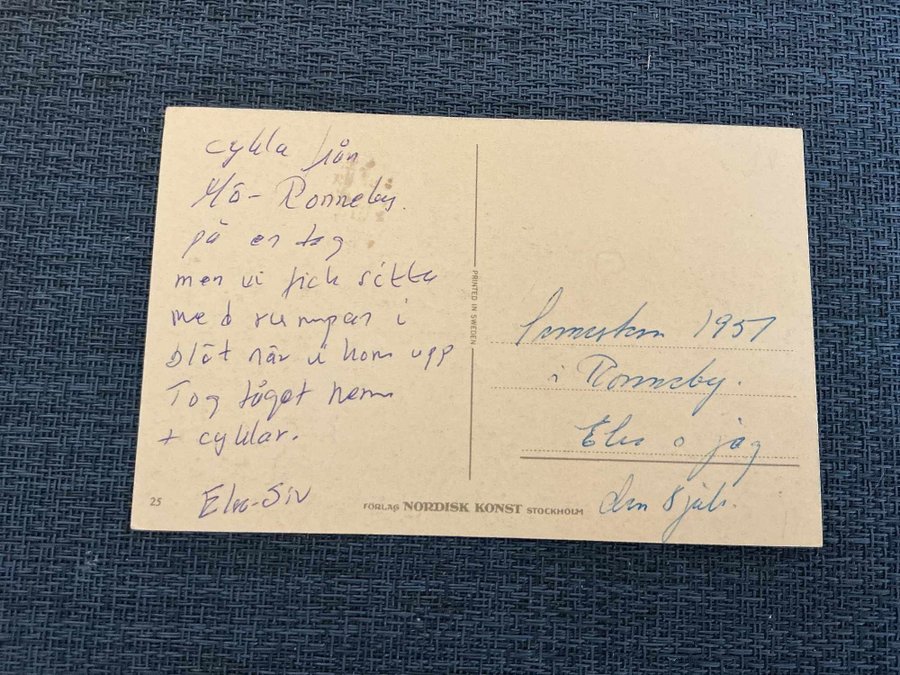 cykla från
Hö- Ronneby.
på en dag
men vi fick sitta
med rumpan i
blöt när vi kom upp
Tog tåget hem
+ cyklar.
Elve-Siv
25
PRINTED IN SWEDEN
FÖRLAG NORDISK KONST STOCKHOLM
Semestern 1951
i Ronneby.
o jag
den 8 juli.